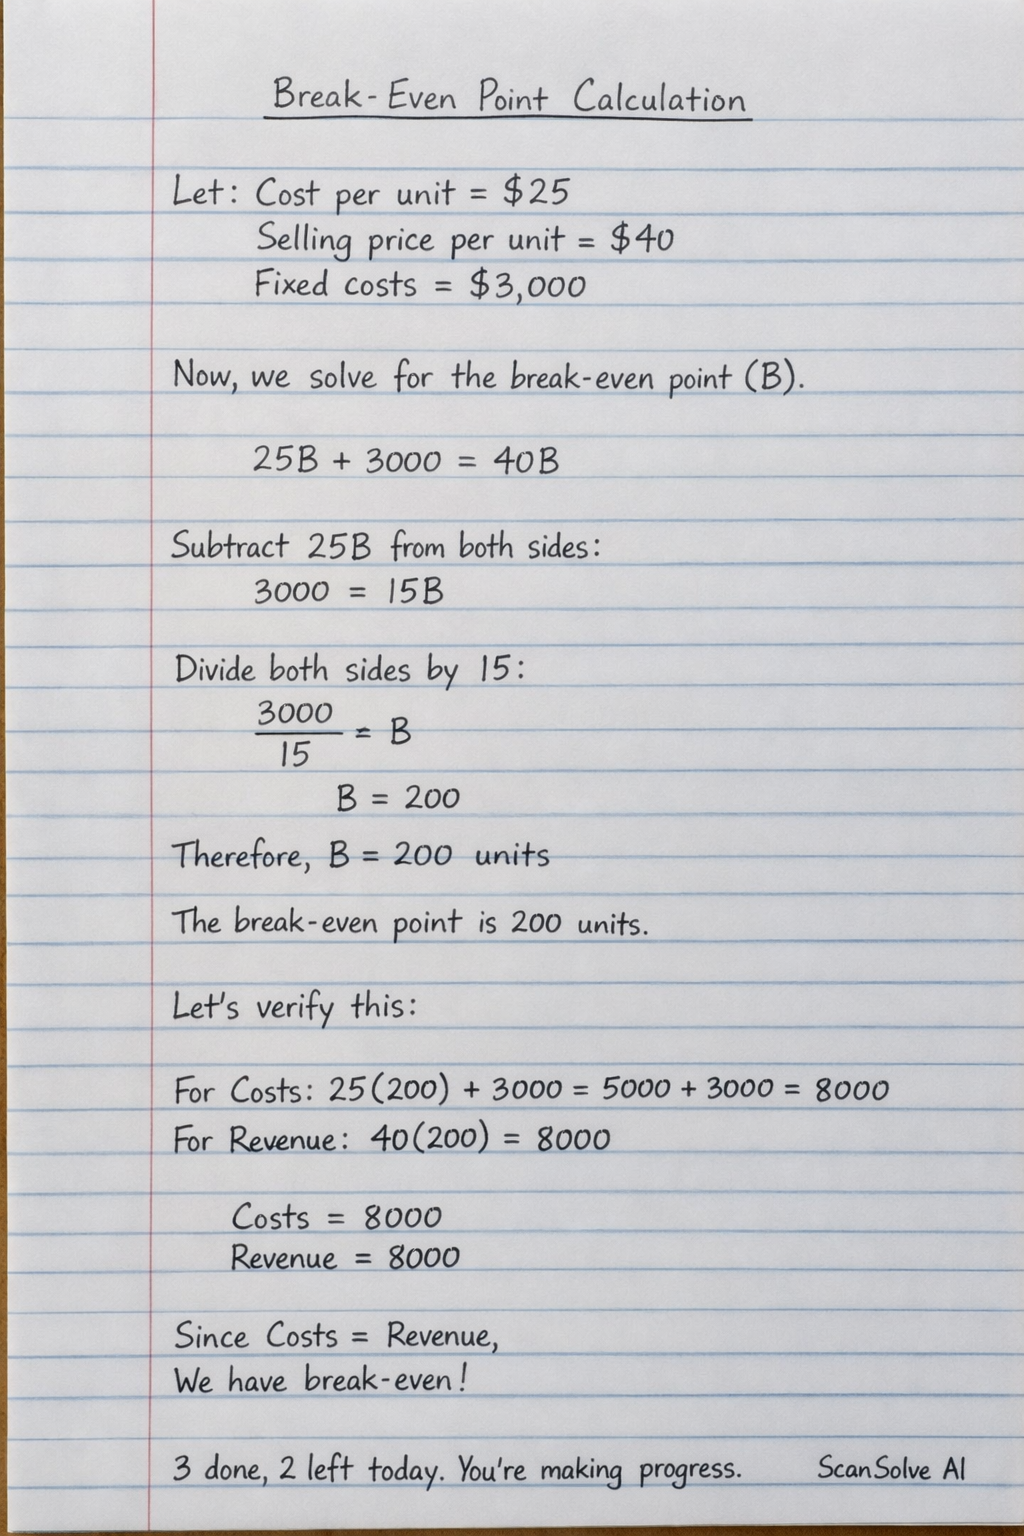 Break-Even Point Calculation
Let: Cost per unit = $25
Selling price per unit = $40
Fixed costs = $3,000
Now, we solve for the break-even point (B).
25B + 3000 = 40B
Subtract 25B from both sides:
3000 = 15B
Divide both sides by 15:
3000
15
= B
B = 200
Therefore, B = 200 units
The break-even point is 200 units.
Let's verify this:
For Costs: 25(200) + 3000 = 5000 + 3000 = 8000
For Revenue: 40(200) = 8000
Costs = 8000
Revenue = 8000
Since Costs = Revenue,
We have break-even!
3 done, 2 left today. You're making progress. ScanSolve AI